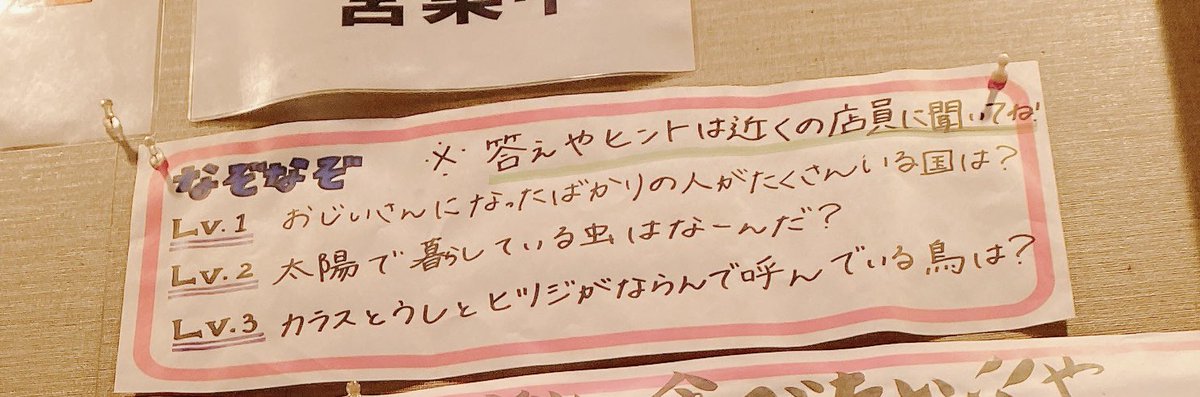 営業中
なぞなぞ ※ 答えやヒントは近くの店員に聞いてね!
Lv.1 おじいさんになったばかりの人がたくさんいる国は?
Lv.2 太陽で暮らしている虫はなーんだ?
Lv.3 カラスとうしとヒツジがならんで呼んでいる鳥は?